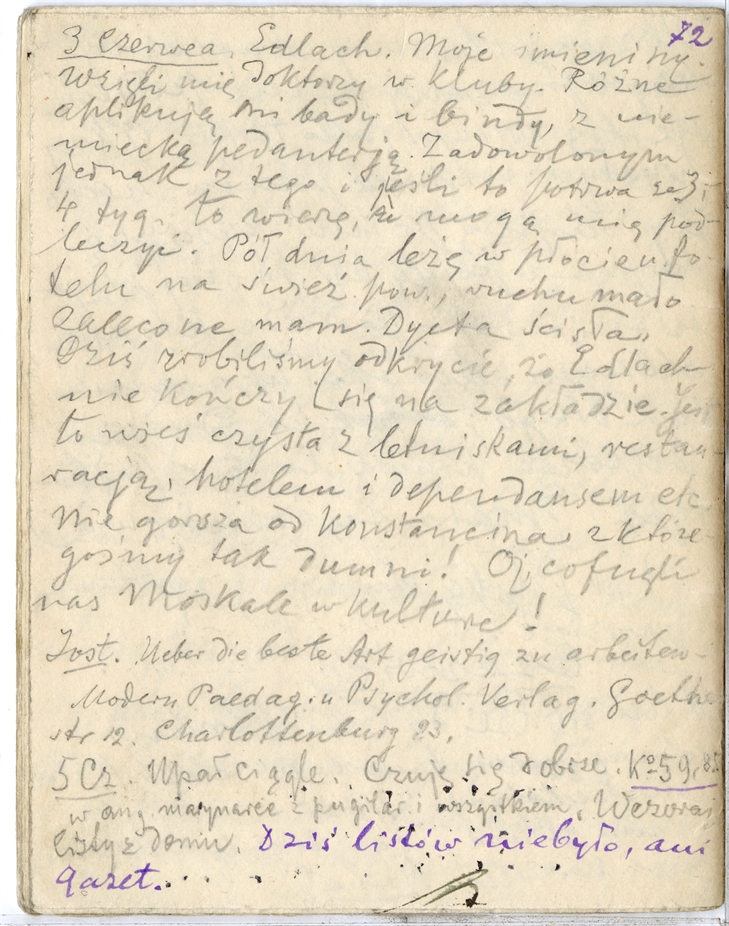 72
3 Czerwca. Edlach. Moje imieniny.
Wzięli mię doktorzy w kluby. Różne
aplikują mi bady i bindy, z nie-
miecką pedanterją. Zadowolonym
jednak z tego i jeśli to potrwa ze 3 i
4 tyg. to wierzę, że mogą mię pod-
leczyć. Pół dnia leżę w płócien. fo-
telu na śwież. pow., ruchu mało
zalecone mam. Dyeta ścisła.
Dziś zrobiliśmy odkrycie, że Edlach
nie kończy się na zakładzie. Jest
to wieś czysta z letniskami, restau-
racją, hotelem i dependansem etc.
nie gorsza od Konstancina z które-
gośmy tak dumni! Oj, cofnęli
nas Moskale w kulturze!
Jost. Ueber die beste Art geistig zu arbeiten-
Modern Paedag. u Psychol. Verlag. Goethe
str 12. Charlottenburg 23.
5 Cz. Upał ciągle. Czuję się dobrze. Ko 59,85
w ang. marynarce z pugilar. i wszystkiem. Wczoraj
listy z domu. Dziś listów niebyło, ani
gazet.